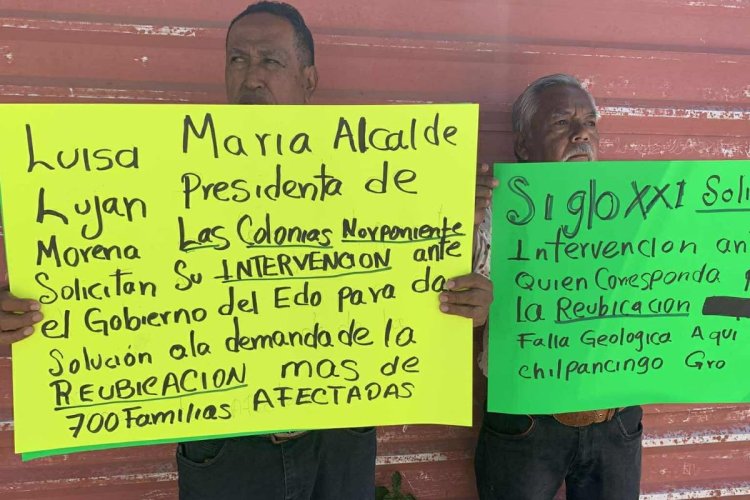 Luisa Maria Alcalde
Lujan Presidenta de
Morena Las Colonias Norponiente
Solicitan Su INTERVENCION ante
el Gobierno del Edo para da
Solución ala demanda de la
REUBICACION mas de
700 Familias AFECTADAS
Siglo XXI Soli
Intervencion an
Quien Corresponda
La Reubicacion
Falla Geologica Aqui
chilpancingo Gro